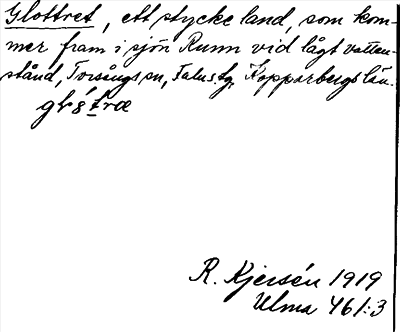 Glottret, ett stycke land, som kom-
mer fram i sjön Runn vid lågt vatten-
stånd, Torsångs sn, Falus tg, Kopparbergs län.
R. Kjersén 1919
Ulma 461:3